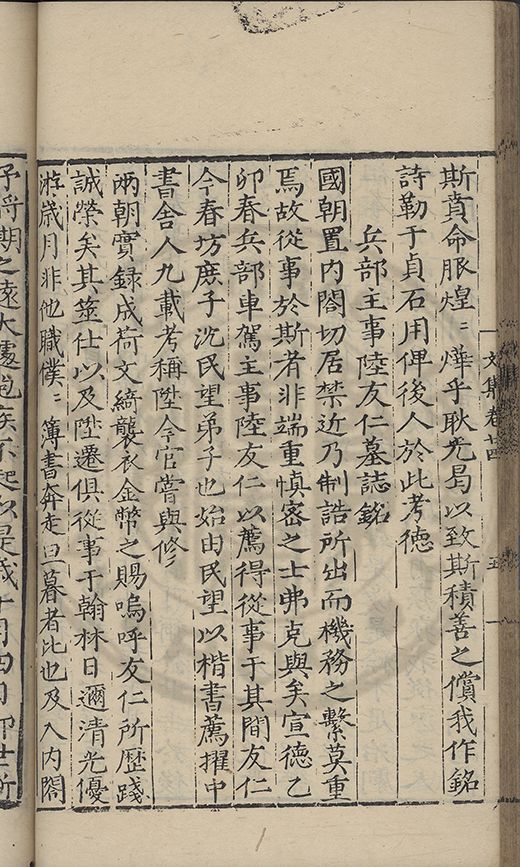 文集卷廿四
五
斯賁命服煌〻燁乎耿光曷以致斯積善之償我作銘
詩勒于貞石用俾後人於此考德
兵部主事陸友仁墓誌銘
國朝置內閣切居禁近乃制誥所出而機務之繫莫重
焉故從事於斯者非端重慎密之士弗克與矣宣德乙
卯春兵部車駕主事陸友仁以薦得從事于其間友仁
今春坊庶子沈民望弟子也始由民望以楷書薦擢中
書舍人九載考稱陞今官嘗與修
兩朝實録成荷文綺襲衣金幣之賜嗚呼友仁所歷踐
誠榮矣其筮仕以及陞遷俱從事于翰林日邇清光優
游歲月非他職僕〻簿書奔走旦暮者比也及入內閣
予將期之遠大遽抱疾不起以是歲十月四日卽世所